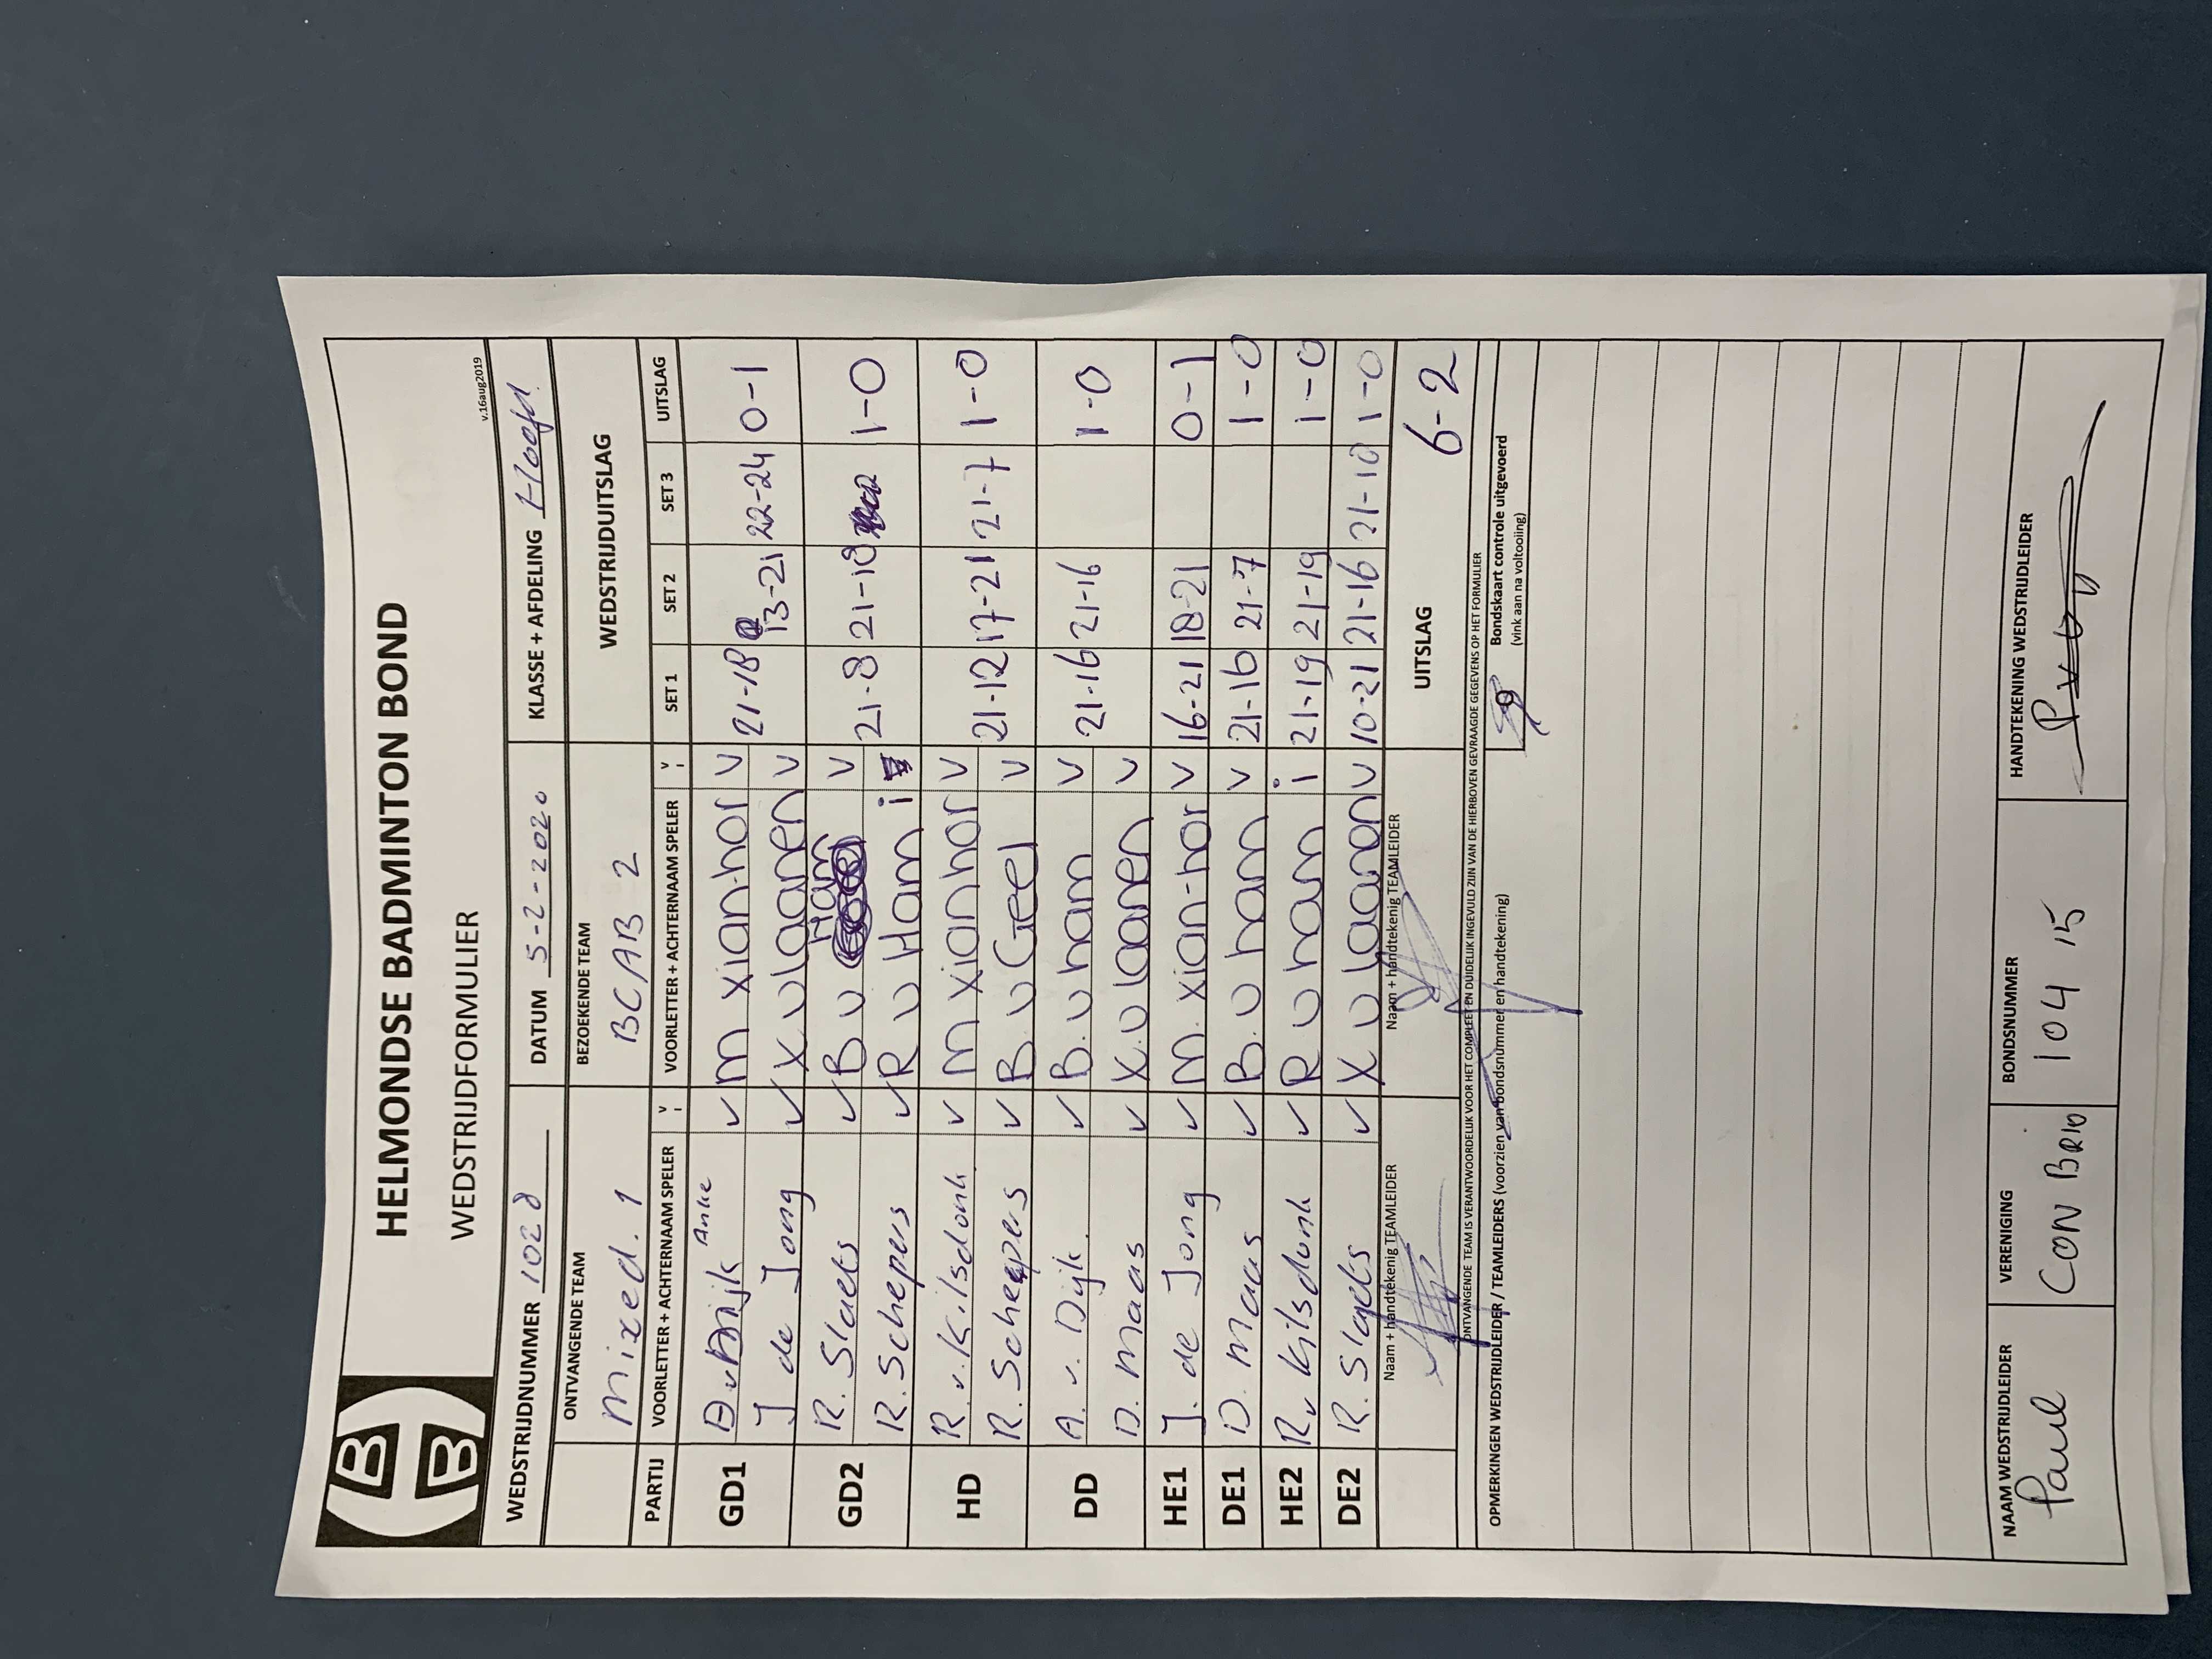 HELMONDSE BADMINTON BOND
WEDSTRIJDFORMULIER
v.16aug2019
WEDSTRIJDNUMMER 1028 DATUM 5-2-2020 KLASSE + AFDELING Hoofd
ONTVANGENDE TEAM BEZOEKENDE TEAM WEDSTRIJDUITSLAG
Mixed. 1 BCAB 2
PARTIJ VOORLETTER + ACHTERNAAM SPELER v i VOORLETTER + ACHTERNAAM SPELER v i SET 1 SET 2 SET 3 UITSLAG
GD1 v Dijk Anke v M xian-hor v 21-18 13-21 22-24 0-1
J de Jong v X. v laanen v
GD2 R. Slaets v B v Ham v 21-8 21-10 1-0
R. Schepers v R v Ham i
HD R. v. Kilsdonk v M xianhor v 21-12 17-21 21-7 1-0
R. Schepers v B. v Geel v
DD A. v. Dijk. v B. v ham v 21-16 21-16 1-0
D. Maas v X. v laanen v
HE1 J. de Jong v M. xian-hor v 16-21 18-21 0-1
DE1 D. Maas v B. v ham v 21-16 21-7 1-0
HE2 R v Kilsdonk v R v ham i 21-19 21-19 1-0
DE2 R. Slaets v X v laanen v 10-21 21-16 21-10 1-0
Naam + handtekenig TEAMLEIDER Naam + handtekenig TEAMLEIDER UITSLAG 6-2
ONTVANGENDE TEAM IS VERANTWOORDELIJK VOOR HET COMPLEET EN DUIDELIJK INGEVULD ZIJN VAN DE HIERBOVEN GEVRAAGDE GEGEVENS OP HET FORMULIER
OPMERKINGEN WEDSTRIJDLEIDER / TEAMLEIDERS (voorzien van bondsnummer en handtekening) Bondskaart controle uitgevoerd
(vink aan na voltooiing)
NAAM WEDSTRIJDLEIDER VERENIGING BONDSNUMMER HANDTEKENING WEDSTRIJDLEIDER
Paul CON BRIO 104 15